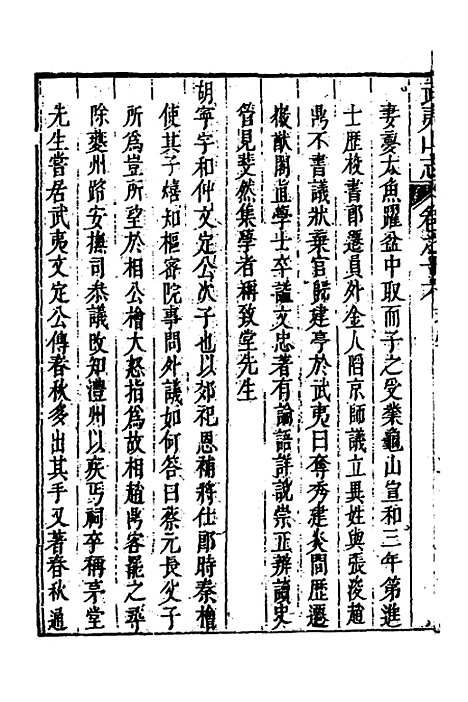 武夷山志
妻夢大魚躍盆中取而子之受業龜山宣和三年第進
士歷校書郎遷員外金人陷京師議立異姓與張浚趙
鼎不書議狀棄官歸建亭於武夷曰奪秀建炎間歷遷
徽猷閣直學士卒謚文忠著有論語詳說崇正辨讀史
管見斐然集學者稱致堂先生
胡寧字和仲文定公次子也以郊祀恩補將仕郎時秦檜
使其子熺知樞密院事問外議如何答曰蔡元長父子
所爲豈所望於相公檜大怒指爲故相趙鼎客罷之尋
除夔州路安撫司叅議改知澧州以疾丐祠卒稱茅堂
先生嘗居武夷文定公傳春秋多出其手又著春秋通